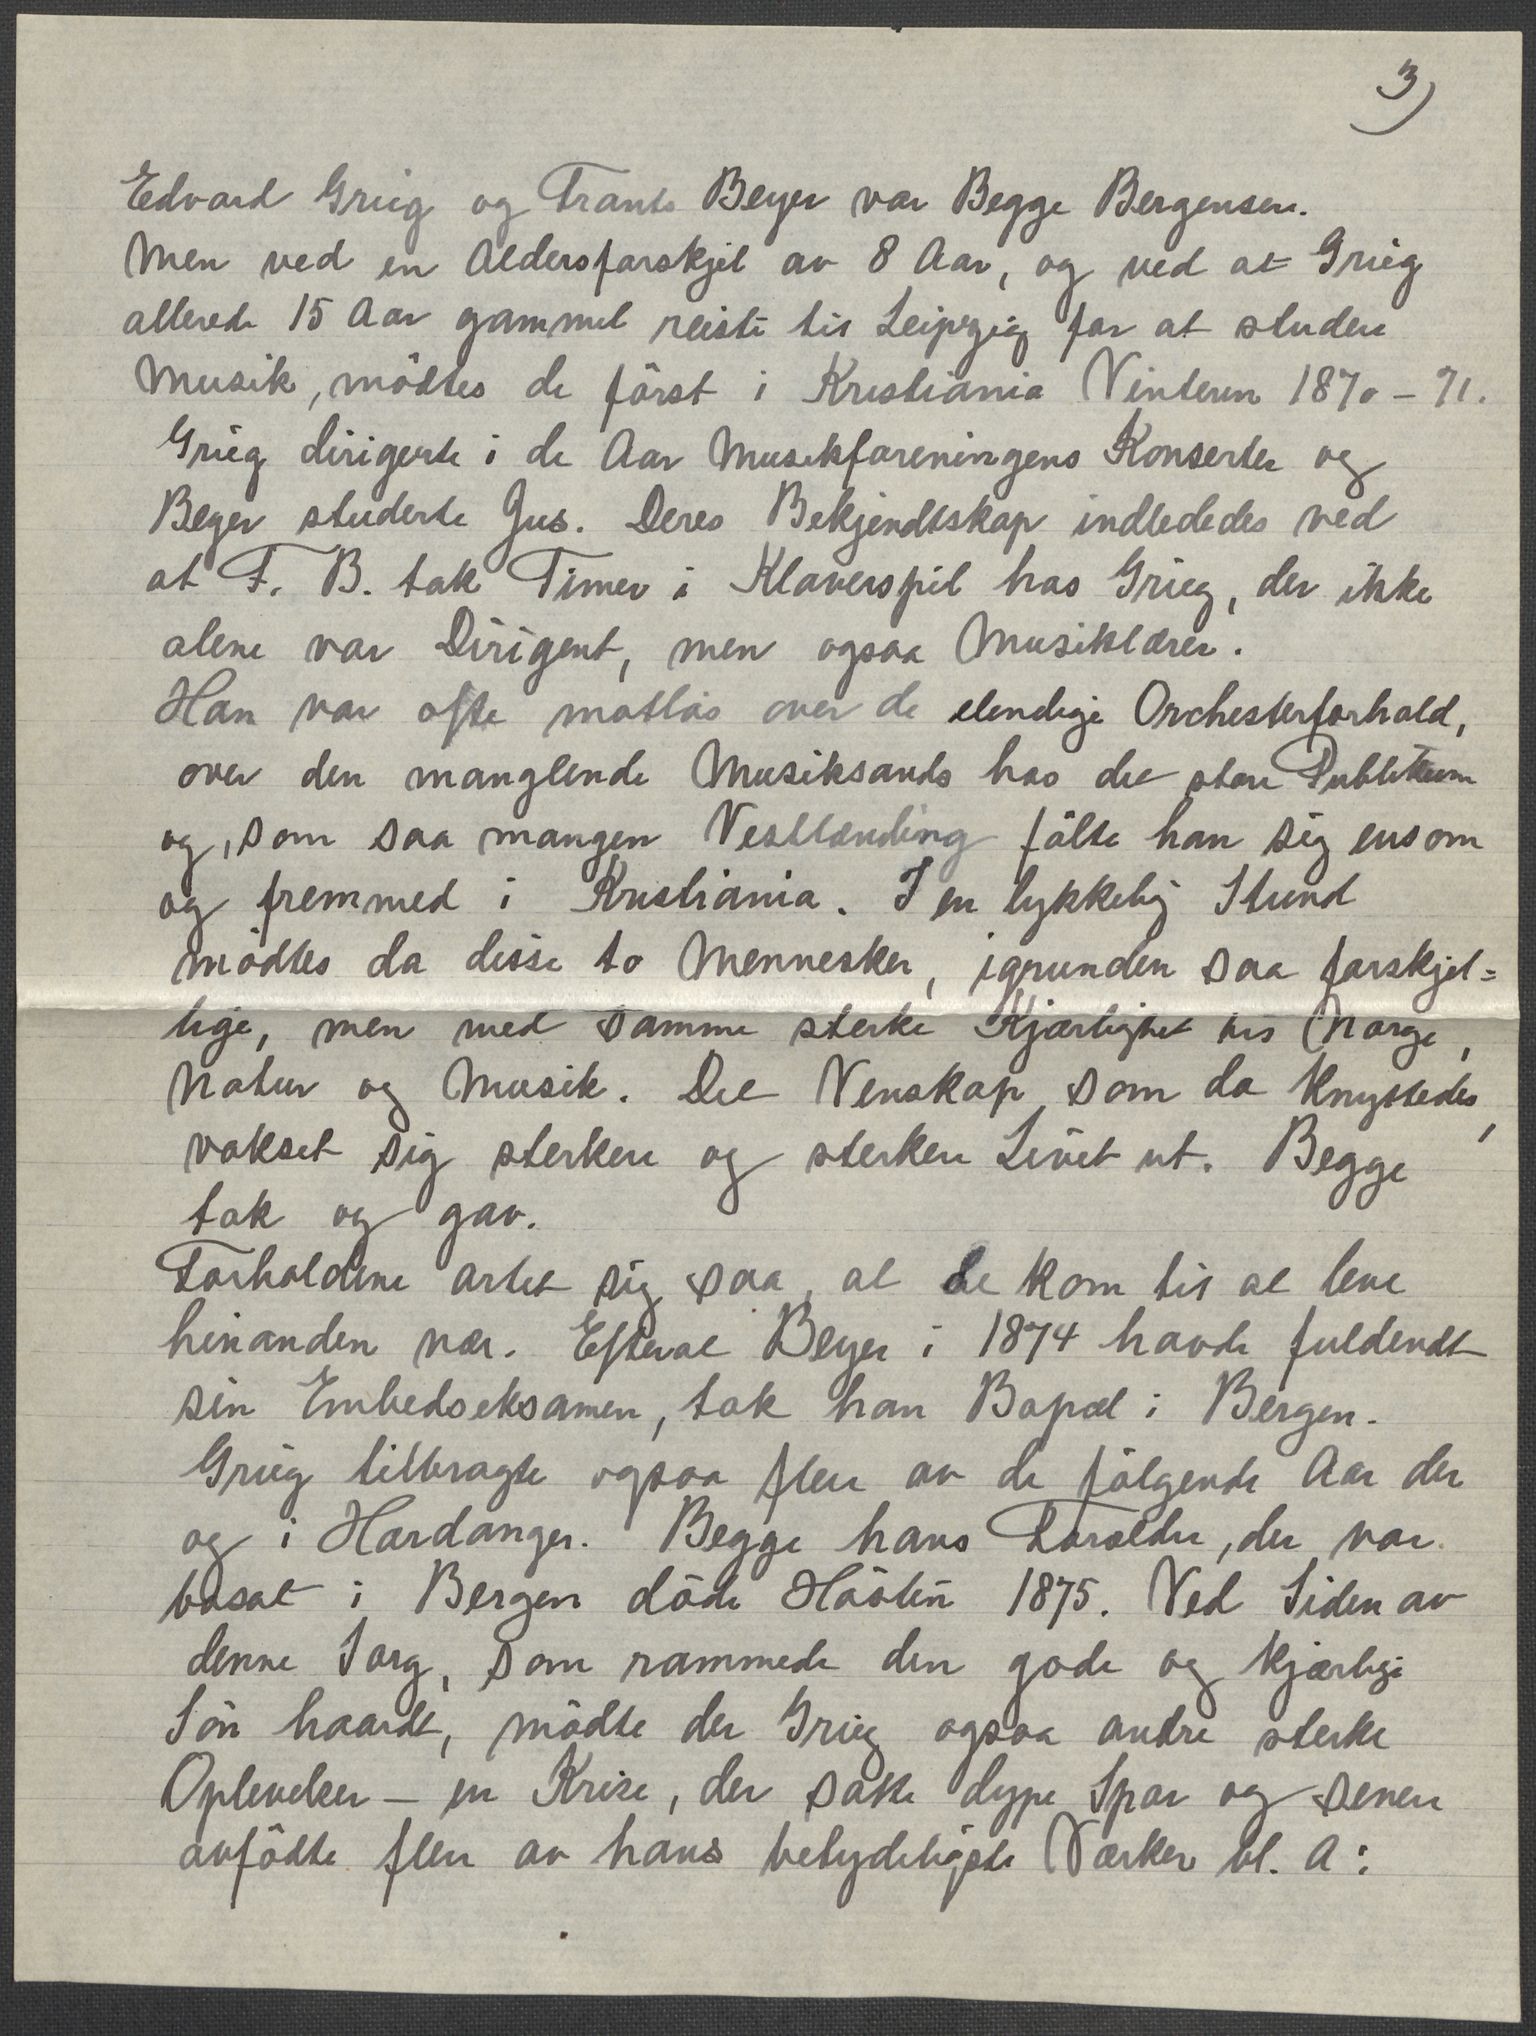 3)
Edvard Grieg og Frants Beyer var Begge Bergensere.
Men ved en Aldersforskjel av 8 Aar, og ved at Grieg
allerede 15 Aar gammel reiste til Leipzig for at studere
Musik, mödtes de först i Kristiania Vinteren 1870 – 71.
Grieg dirigerte i de Aar Musikforeningens Konserter og
Beyer studerte Jus. Deres Bekjendtskap indlededes ved
at F. B. tok Timer i Klaverspil hos Grieg, der ikke
alene var Dirigent, men ogsaa Musiklærer.
Han var ofte motlös over de elendige Orchesterforhold,
over den manglende Musiksands hos det store Publikum
og, som saa mangen Vestlænding fölte han sig ensom
og fremmed i Kristiania. I en lykkelig Stund
mödtes da disse to Mennesker, igrunden saa forskjel=
lige, men med samme sterke Kjærlighet til Norge,
Natur og Musik. Det Venskap som da knyttedes,
vokset sig sterkere og sterkere Livet ut. Begge
tok og gav.
Forholdene artet sig saa, at de kom til at leve
hinanden nær. Efterat Beyer i 1874 havde fuldendt
sin Embedseksamen, tok han Bopæl i Bergen.
Grieg tilbragte ogsaa flere av de fölgende Aar der
og i Hardanger. Begge hans Forældre, der var
bosat i Bergen döde Hösten 1875. Ved Siden av
denne Sorg, som rammede den gode og kjærlige
Sön haardt, mödte der Grieg ogsaa andre sterke
Oplevelser – en Krise, der satte dype Spor og senere
avfödte flere av hans betydeligste Værker bl. A: